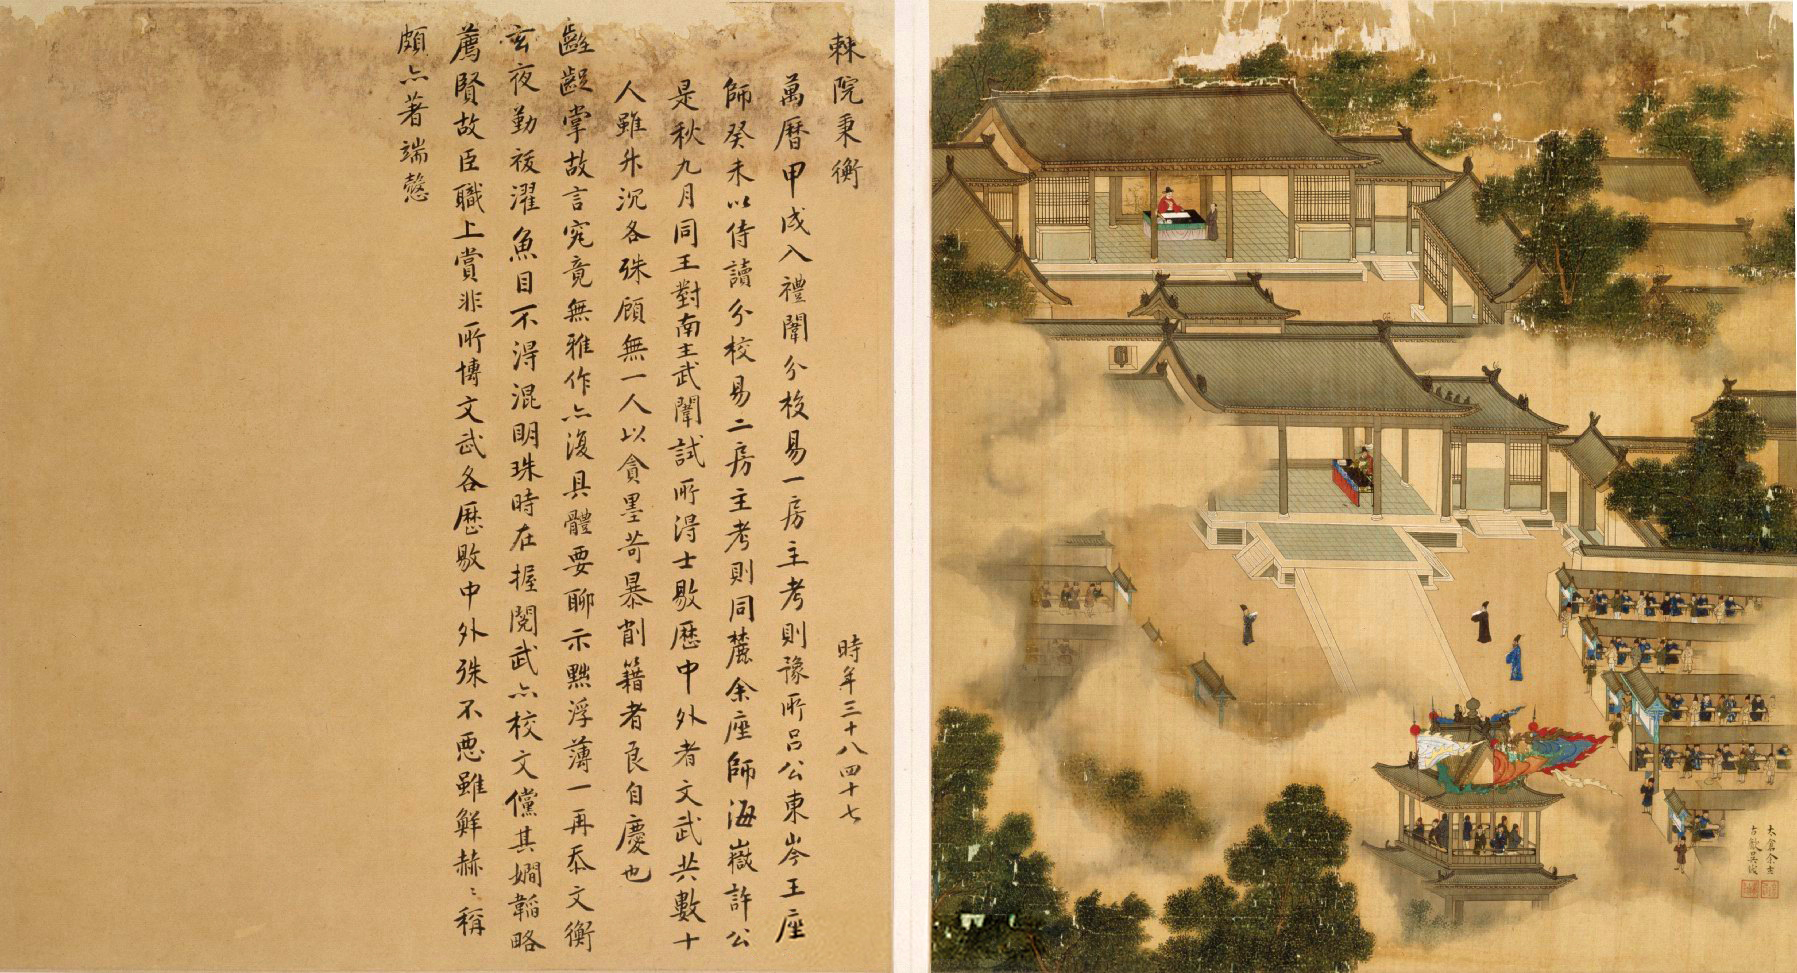 棘院秉衡
時年三十八四十七
萬曆甲戌入禮闈分校易一房主考則豫所吕公東岑王座
師癸未以侍讀分校易二房主考則同麓余座師海嶽許公
是秋九月同王對南主武闈試所淂士敭歷中外者文武共數十
人雖升沉各殊顧無一人以貪墨苛暴削籍者良自慶也
齷齪掌故言究竟無雅作亦復具體要聊示黜浮薄一再忝文衡
玄夜勤祓濯魚目不淂混明珠時在握閱武亦校文儻其嫺韜略
薦賢故臣職上賞非所博文武各歷敭中外殊不惡雖鮮赫〻稱
頗亦著端慤
太倉余士
古歙吳鉞